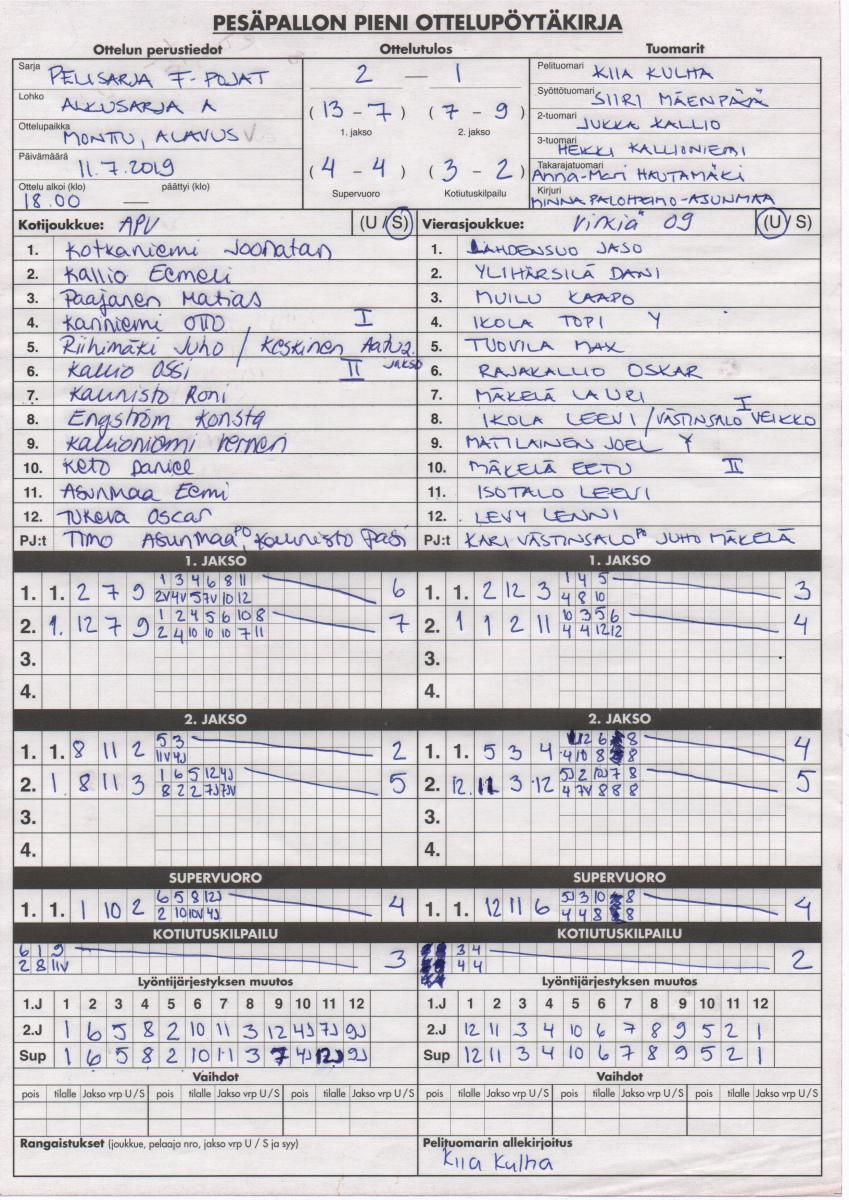 PESÄPALLON PIENI OTTELUPÖYTÄKIRJA
Ottelun perustiedot
Sarja PELISARJA F-POJAT
Lohko ALKUSARJA A
Ottelupaikka MONTTU, ALAVUS
Päivämäärä 11.7.2019
Ottelu alkoi (klo) päättyi (klo)
18.00 —
Ottelutulos
2 — 1
(13 - 7) (7 - 9)
1. jakso 2. jakso
(4 - 4) (3 - 2)
Supervuoro Kotiutuskilpailu
Tuomarit
Pelituomari KIIA KULHA
Syöttötuomari SIIRI MÄENPÄÄ
2-tuomari JUKKA KALLIO
3-tuomari HEIKKI KALLIONIEMI
Takarajatuomari Anna-Mari HAUTAMÄKI
Kirjuri MINNA PALOHEIMO-ASUNMAA
Kotijoukkue: APV (U / S)
1. Kotkaniemi Joonatan
2. Kallio Eemeli
3. Paajanen Matias
4. Kanniemi OTTO I
5. Riihimäki Juho / Keskinen Aatu 2. JAKSO
6. Kallio Ossi II
7. Kaunisto Roni
8. Engström Konsta
9. Kallioniemi Verneri
10. Keto Daniel
11. Asunmaa Eemi
12. Tukeva Oscar
PJ:t TIMO Asunmaa PO, Kaunisto Pasi
Vierasjoukkue: Virkiä 09 (U / S)
1. LAHDENSUO JASO
2. YLIHÄRSILÄ DANI
3. MUILU KAAPO
4. IKOLA TOPI Y
5. TUOVILA MAX
6. RAJAKALLIO OSKAR
7. MÄKELÄ LAURI
8. IKOLA LEEVI / VÄSTINSALO VEIKKO I
9. MATILAINEN JOEL Y
10. MÄKELÄ EETU II
11. ISOTALO LEEVI
12. LEVY LENNI
PJ:t KARI VÄSTINSALO PO JUHO MÄKELÄ
1. JAKSO
1. 1. 2 7 9 1 3 4 6 8 11 6
2V 4V 5 7V 10 12
2. 1. 12 7 9 1 2 4 5 6 10 8 7
2 4 10 10 10 7 11
3.
4.
1. JAKSO
1. 1. 2 12 3 1 4 5 3
4 8 10
2. 1 1 2 11 10 3 5 6 4
4 4 12 12
3.
4.
2. JAKSO
1. 1. 8 11 2 5 3 2
11V 4J
2. 1 8 11 3 1 6 5 12 4J 5
8 2 2 7J 7JV
3.
4.
2. JAKSO
1. 1. 5 3 4 12 6 8 4
4 10 8 8
2. 12. 11 3 12 5J 2 10J 7 8 5
4 7V 8 8 8
3.
4.
SUPERVUORO
1. 1. 1 10 2 6 5 8 12J 4
2 10 10V 4J
SUPERVUORO
1. 1. 12 11 6 5J 3 10 8 4
4 4 8 8
KOTIUTUSKILPAILU
6 1 9 3
2 8 11V
KOTIUTUSKILPAILU
3 4 2
4 4
Lyöntijärjestyksen muutos
1.J 1 2 3 4 5 6 7 8 9 10 11 12
2.J 1 6 5 8 2 10 11 3 12 4J 7J 9J
Sup 1 6 5 8 2 10 11 3 7 4J 12J 9J
Lyöntijärjestyksen muutos
1.J 1 2 3 4 5 6 7 8 9 10 11 12
2.J 12 11 3 4 10 6 7 8 9 5 2 1
Sup 12 11 3 4 10 6 7 8 9 5 2 1
Vaihdot
pois tilalle Jakso vrp U / S pois tilalle Jakso vrp U / S pois tilalle Jakso vrp U / S
Vaihdot
pois tilalle Jakso vrp U / S pois tilalle Jakso vrp U / S pois tilalle Jakso vrp U / S
Rangaistukset (joukkue, pelaaja nro, jakso vrp U / S ja syy)
Pelituomarin allekirjoitus
Kiia Kulha